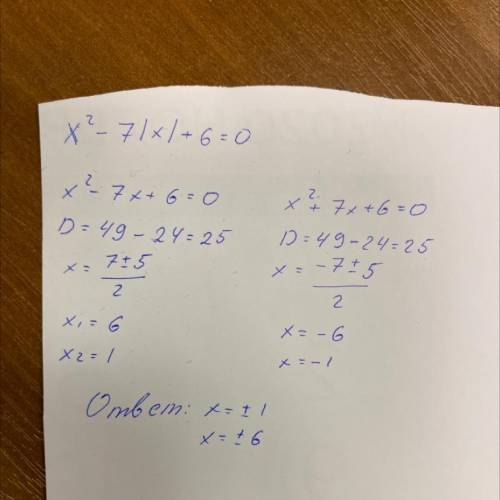 x² - 7|x| + 6 = 0
x² - 7x + 6 = 0
D = 49 - 24 = 25
x = (7 ± 5)/2
x₁ = 6
x₂ = 1
x² + 7x + 6 = 0
D = 49 - 24 = 25
x = (-7 ± 5)/2
x = -6
x = -1
Ответ: x = ± 1
x = ± 6